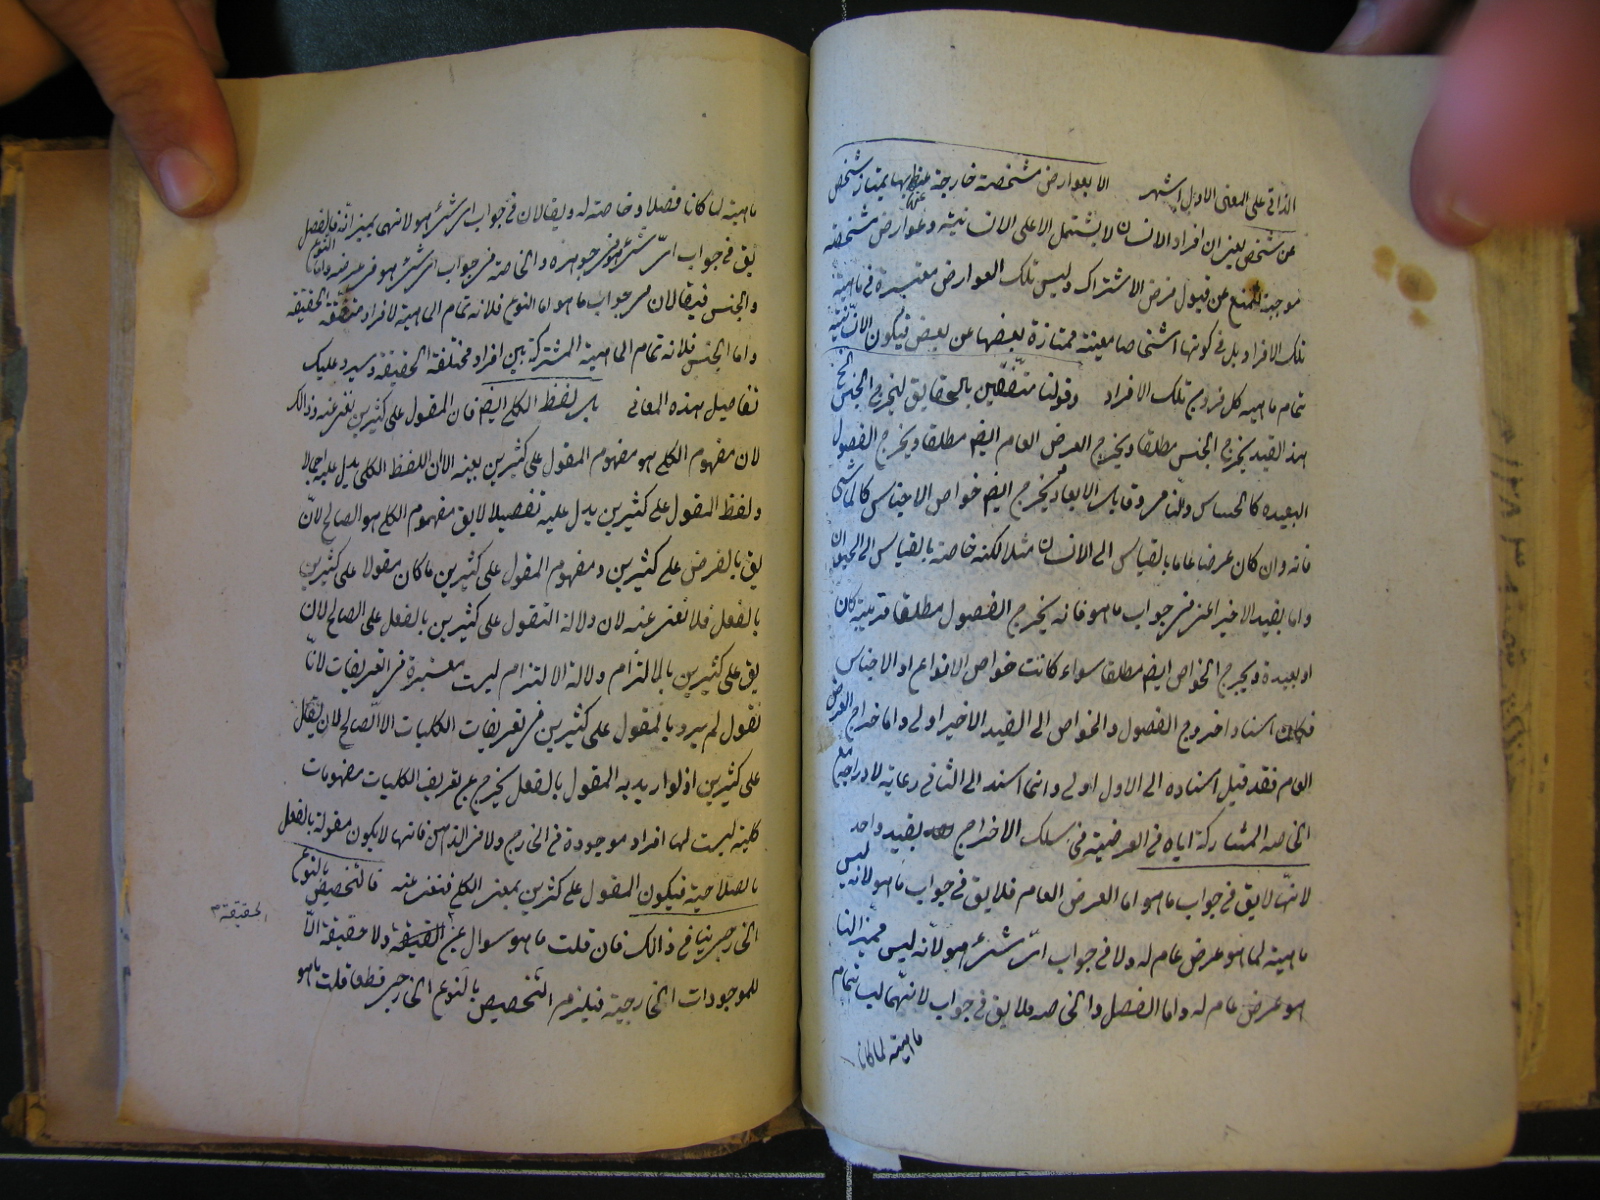 الذاتي على المعنى الاول اشهر الا بعوارض مشخصة خارجة عنها بها يمتاز شخص
عن شخص يعني ان افراد الانسان لا يشتمل الا على الانسانية وعوارض مشخصة
موجبة للمنع عن قبول فرض الاشتراك وليس تلك العوارض معتبرة في ماهية
تلك الافراد بل في كونها اشخاصا معينة ممتازة بعضها عن بعض فيكون الانسانية
تمام ماهيه كل فرد من تلك الافراد وقولنا متفقين بالحقايق ليخرج الجنس الخ
هذه القيد يخرج الجنس مطلقا ويخرج العرض العام ايضا مطلقا ويخرج الفصول
البعيدة كالحساس والنامي وقابل الابعاد ويخرج ايضا خواص الاجناس كالماشي
فانه وان كان عرضا عاما بالقياس الى الانسان مثلا لكنه خاصة بالقياس الى الحيوان
واما بقيد الاخير اعني في جواب ما هو فانه يخرج الفصول مطلقا قريبة كان
او بعيدة ويخرج الخواص ايضا مطلقا سواء كانت خواص الانواع او الاجناس
فكان اسناد خروج الفصول والخواص الى القيد الاخير اولى واما خراج العرض
العام فقد قيل اسناده الى الاول اولى وانما اسند الى الثاني رعاية لادراجه مع
الخاصه المشاركة اياه في العرضية في سلك الاخراج بقيد واحد
لانها لا يق في جواب ما هو اما العرض العام فلا يق في جواب ما هو لانه ليس
ماهية لما هو عرض عام له ولا في جواب اي شئ هو لانه ليس مميزا لما
هو عرض عام له واما الفصل والخاصه فلا يق في جواب لانهما ليسا تمام
ماهيته لما كانا
ماهية لما كانا فصلا وخاصة له ويقالان في جواب اي شئ هو لانهما يميزانه فالفصل
يق في جواب اي شئ هو في جوهره والخاصة في جواب اي شئ هو في عرضه واما النوع
والجنس فيقالان في جواب ما هو اما النوع فلانه تمام الماهية لافراد متفقة الحقيقة
واما الجنس فلانه تمام الماهية المشتركة بين افراد مختلفة الحقيقة وسيرد عليك
تفاصيل هذه المعاني بل لفظ الكلي ايضا فان المقول على كثيرين تغني عنه وذالك
لان مفهوم الكلي هو مفهوم المقول على كثيرين بعينه الا ان اللفظ الكلي يدل عليه اجمالا
ولفظ المقول على كثيرين يدل عليه تفصيلا لا يق مفهوم الكلي هو الصالح لان
يق بالفرض على كثيرين ومفهوم المقول على كثيرين ما كان مقولا على كثيرين
بالفعل فلا تغني عنه لان دلالة المقول على كثيرين بالفعل على الصالح لان
يق على كثيرين بالالتزام ودلالة الالتزام ليست معتبرة في التعريفات لانا
نقول لم يرد بالمقول على كثيرين في تعريفات الكليات الا الصالح لان يقال
على كثيرين اذ لو اريد به المقول بالفعل يخرج عن تعريف الكليات مفهومات
كلية ليست لها افراد موجودة في الخارج ولا في الذهن فانها لا يكون مقولة بالفعل
بالصلاحية فيكون المقول على كثيرين بمعنى الكلي فتغني عنه فالتخصيص بالنوع
الخارجي ينافي ذالك فان قلت ما هو سوال عن الحقيقة ولا حقيقة الا
للموجودات الخارجية فيلزم التخصيص بالنوع الخارجي قطعا قلت ما هو
الحقيقة م